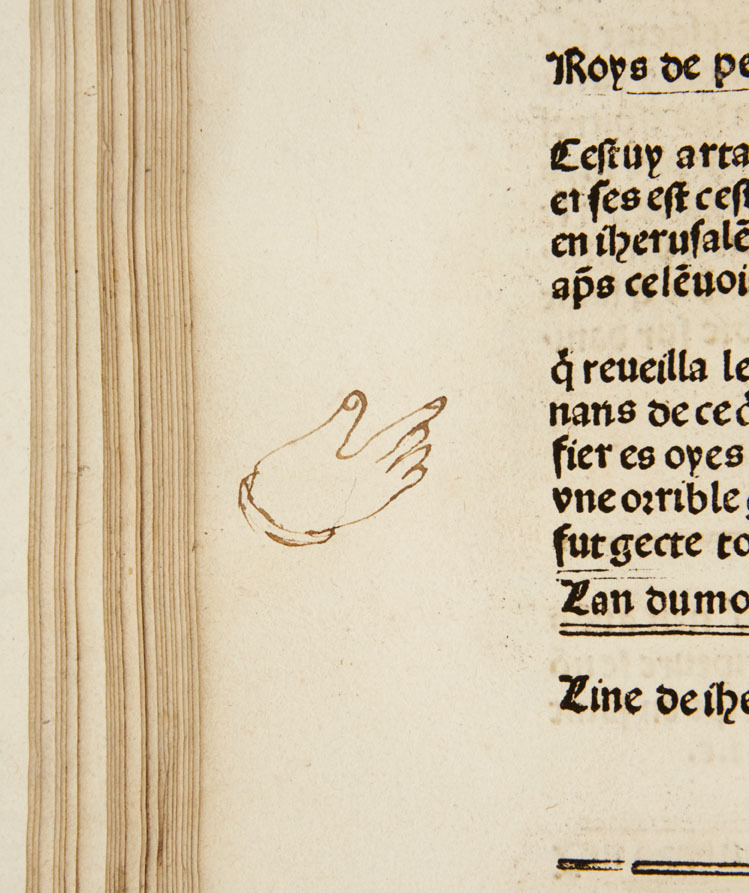 Roys de pe
Cestuy arta
et ses est cest
en iherusalē
ap̄s celēuoi
q̇ reueilla le
nans de ce
fier es oyes
vne orrible
fut gecte to
Lan dumo
Line deihe